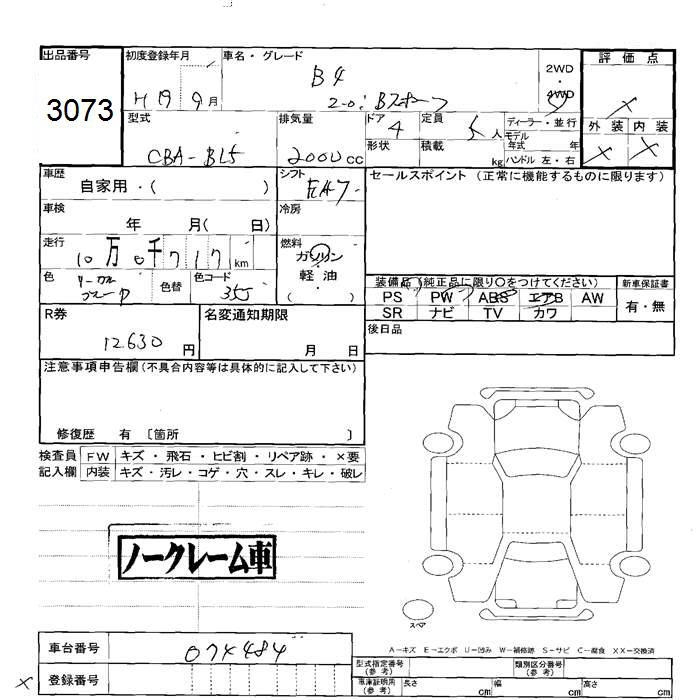 出品番号
3073
初度登録年月
H 19 9月
車名・グレード
B4
2.0i Bスポーツ
2WD
・
4WD
評価点
×
外装 内装
× ×
型式
CBA-BL5
排気量
2000cc
ドア
4
定員
5人
ディーラー・並行
モデル
年式 年
形状
積載
kg
ハンドル 左・右
車歴
自家用・( )
シフト
冷房
セールスポイント (正常に機能するものに限ります)
車検
年 月( 日)
走行
10万0千717km
燃料
ガソリン
軽油
( )
色
色替
色コード
355
装備品 (純正品に限り〇をつけてください)
PS PW ABS エアB AW
SR ナビ TV カワ
新車保証書
有・無
R券
12630円
名変通知期限
月 日
後日品
注意事項申告欄(不具合内容等は具体的に記入して下さい)
修復歴 有 〔箇所 〕
検査員 FW キズ・飛石・ヒビ割・リペア跡・×要
記入欄 内装 キズ・汚レ・コゲ・穴・スレ・キレ・破レ
ノークレーム車
スペア
A-キズ E-エクボ U-凹み W-補修跡 S-サビ C-腐食 XX-交換済
車台番号
074484
登録番号
×
型式指定番号
(参考)
類別区分番号
(参考)
車庫証明用
(参考)
長さ cm
幅 cm
高さ cm